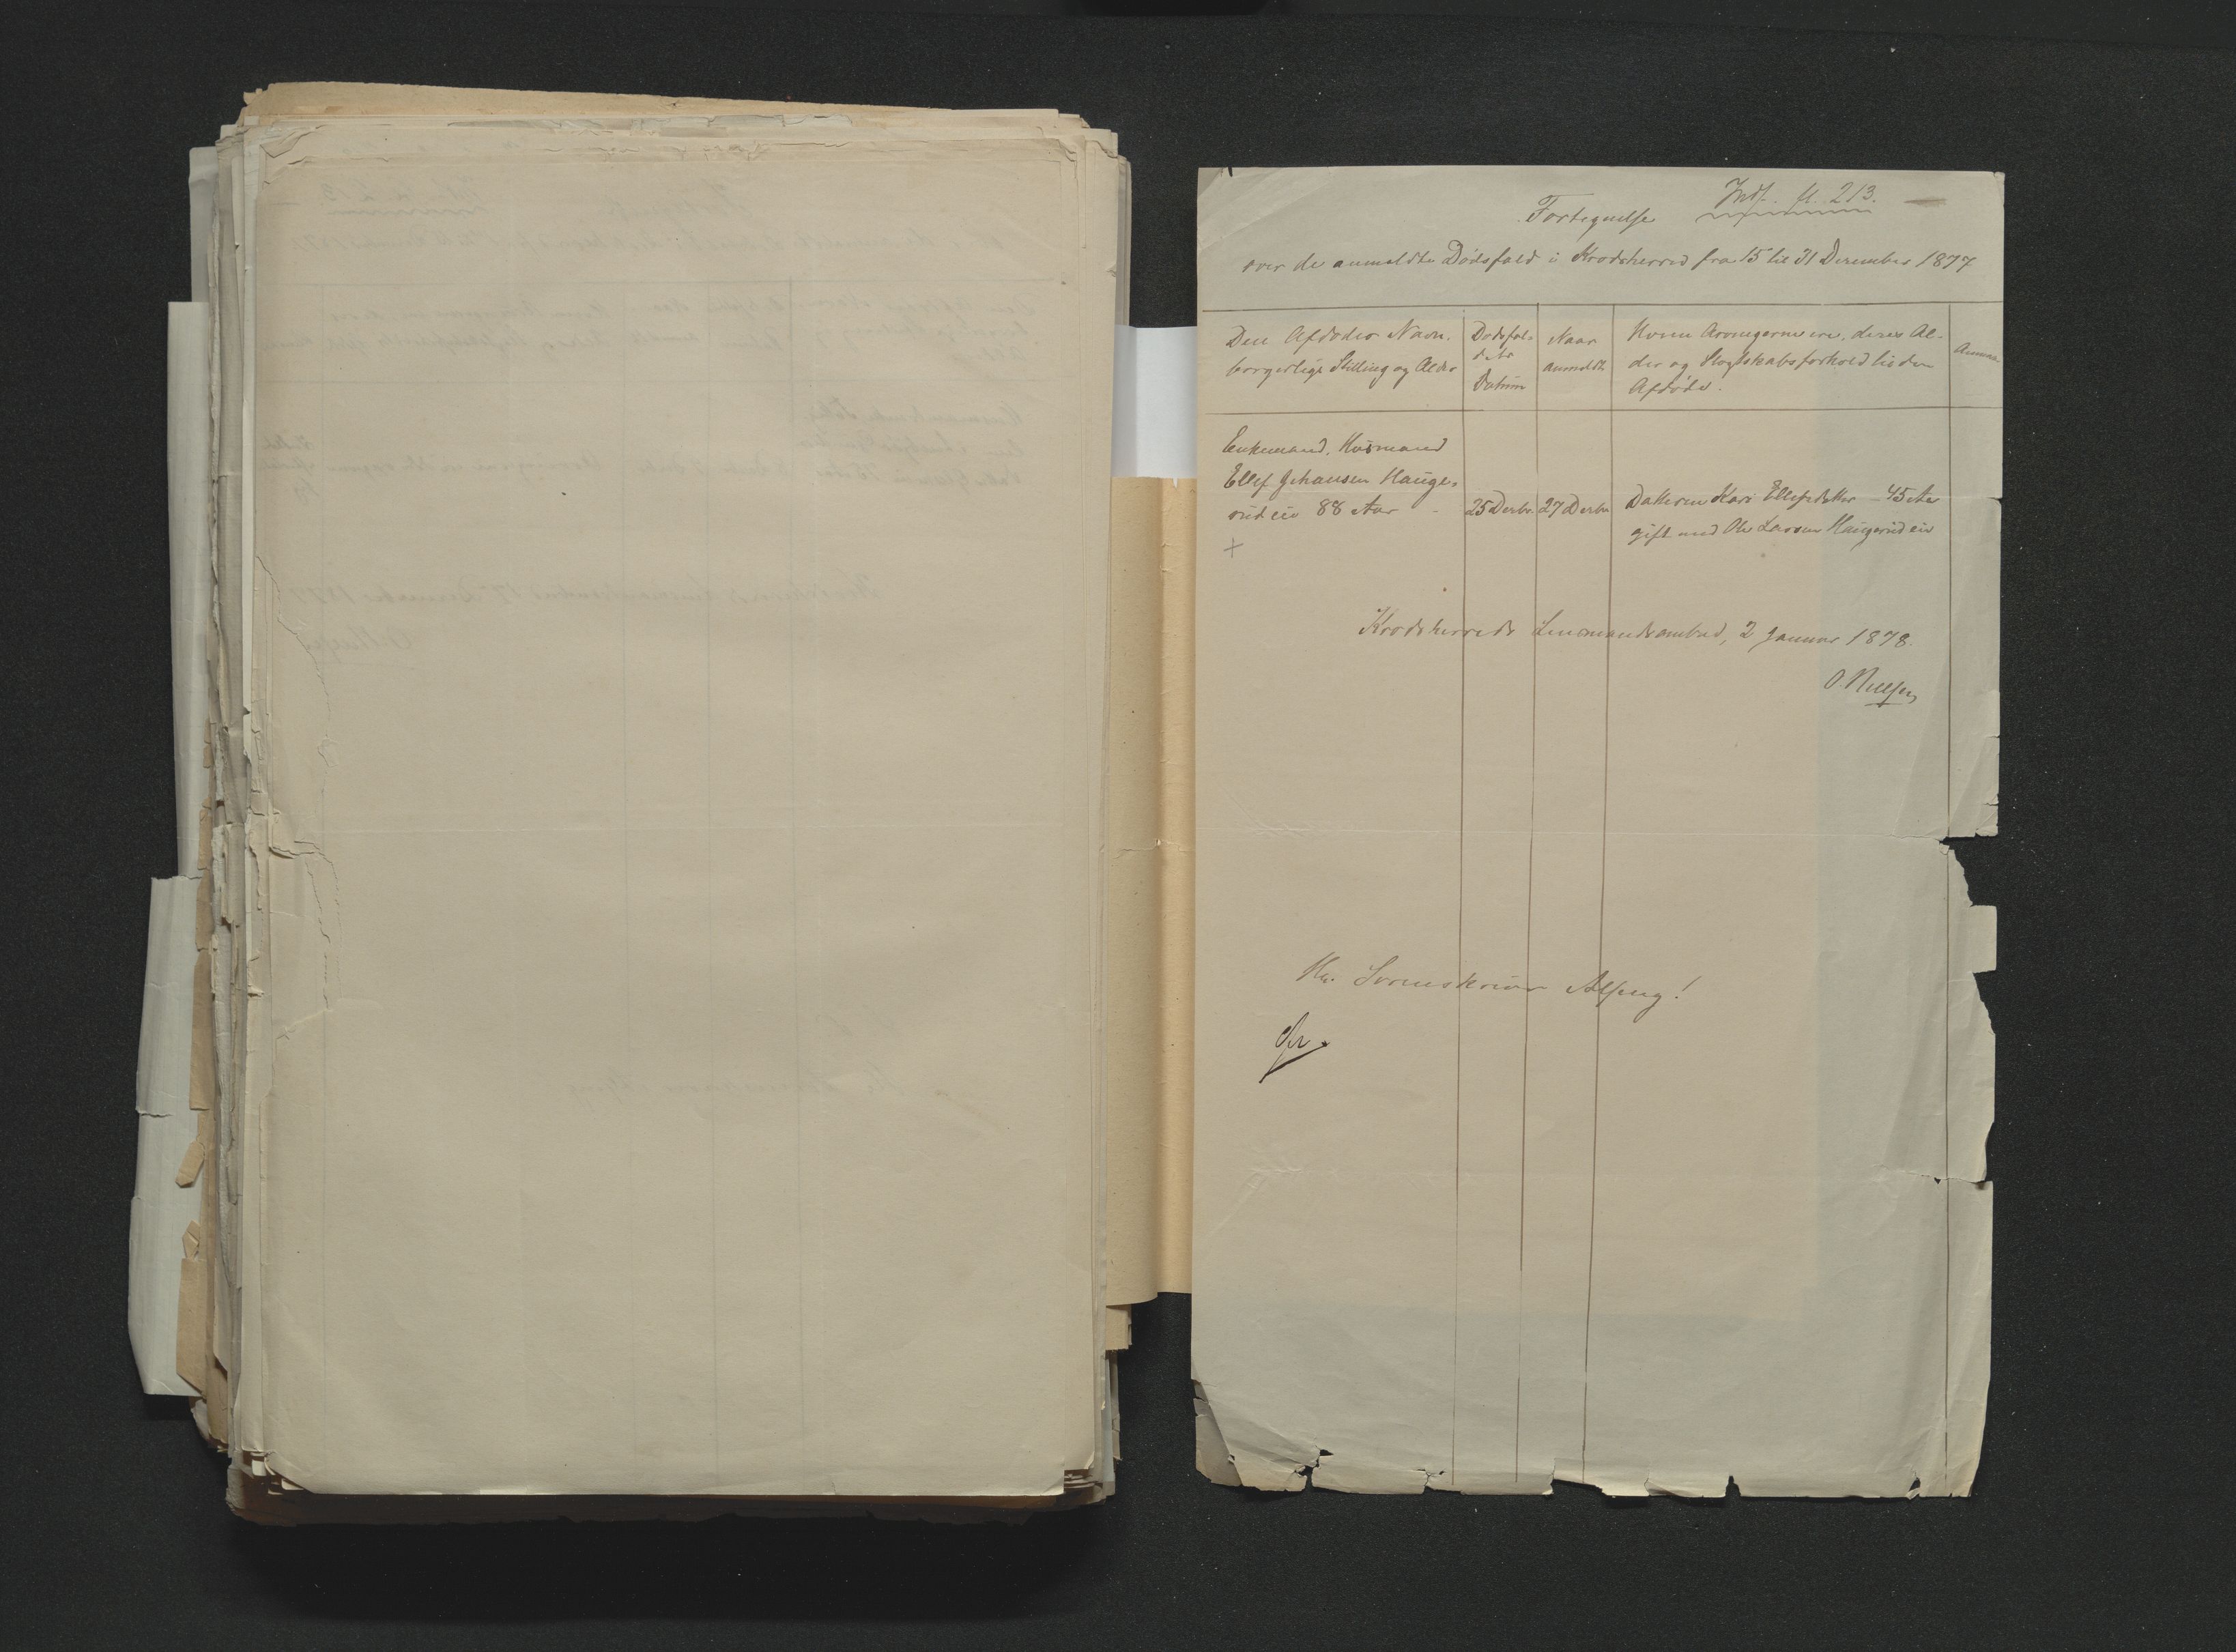 Indf. fl. 213.
Fortegnelse
over de anmeldte Dødsfald i Krødsherred fra 15 til 31 December 1877
Den Afdødes Navn,
borgerlige Stilling og Alder
Dødsfal-
dets
Datum
Naar
anmeldt
Hvem Arvingerne ere, deres Al-
der og Slegtskabsforhold til den
Afdøde.
Enkemand, Husmand
Ellef Johansen Hauge-
rudeie 88 Aar -
25 Decbr.
27 Decbr
Datteren Kari Ellefsdatter - 45 Aar
gift med Ole Larsen Haugerudeie
+
Krødsherreds Lensmandsombud, 2 Januar 1878.
O. Nilsen
Hr. Sorenskriver Alsing!